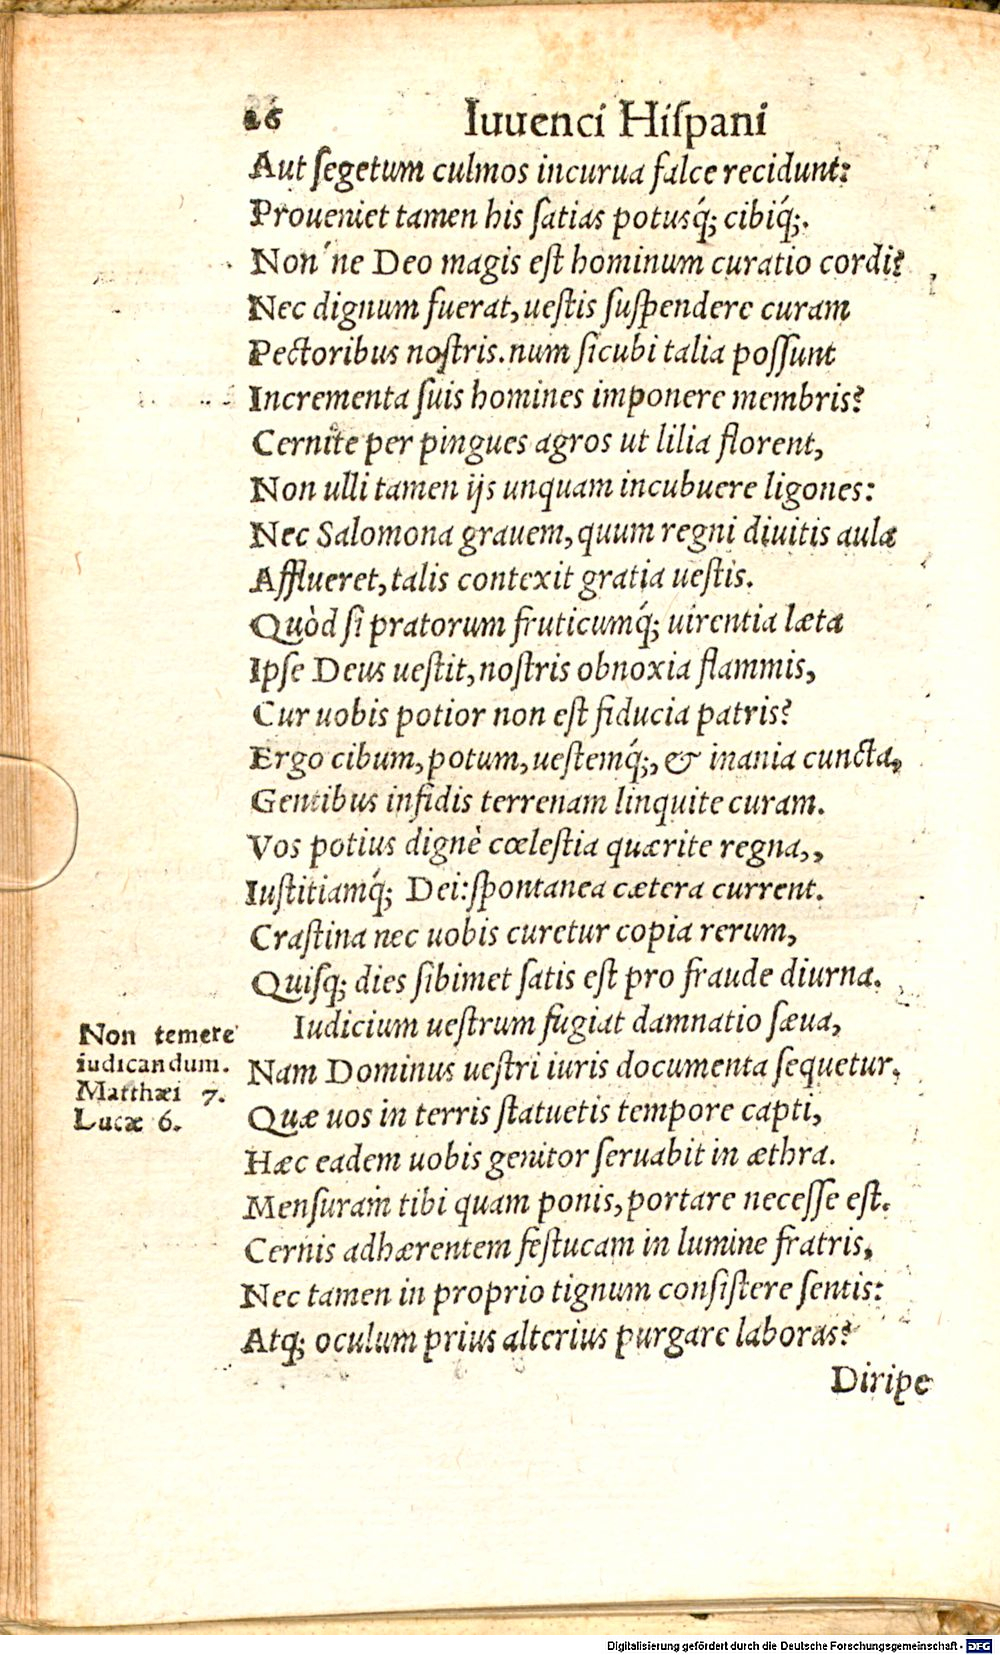 26 Iuuenci Hiſpani
Aut ſegetum culmos incurua falce recidunt:
Proueniet tamen his ſatias potusq́; cibiq́;.
Non ne Deo magis eſt hominum curatio cordi?
Nec dignum fuerat, ueſtis ſuſpendere curam
Pectoribus noſtris. num ſicubi talia poſſunt
Incrementa ſuis homines imponere membris?
Cernite per pingues agros ut lilia florent,
Non ulli tamen ijs unquam incubuere ligones:
Nec Salomona grauem, quum regni diuitis aula
Afflueret, talis contexit gratia ueſtis.
Quòd ſi pratorum fruticumq́; uirentia læta
Ipſe Deus ueſtit, noſtris obnoxia flammis,
Cur uobis potior non eſt fiducia patris?
Ergo cibum, potum, ueſtemq́;, & inania cuncta,
Gentibus infidis terrenam linquite curam.
Vos potius dignè cœleſtia quærite regna,,
Iuſtitiamq́; Dei: ſpontanea cætera current.
Craſtina nec uobis curetur copia rerum,
Quiſq; dies ſibimet ſatis eſt pro fraude diurna.
Non temere
iudicandum.
Matthæi 7.
Lucæ 6.
Iudicium ueſtrum fugiat damnatio ſæua,
Nam Dominus ueſtri iuris documenta ſequetur.
Quæ uos in terris ſtatuetis tempore capti,
Hæc eadem uobis genitor ſeruabit in æthra.
Menſuram tibi quam ponis, portare neceſſe eſt.
Cernis adhærentem feſtucam in lumine fratris,
Nec tamen in proprio tignum conſiſtere ſentis:
Atq; oculum prius alterius purgare laboras?
Diripe
Digitalisierung gefördert durch die Deutsche Forschungsgemeinschaft - DFG